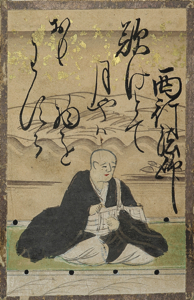 西行法師
歎けとて
月やは
物を
おもはする